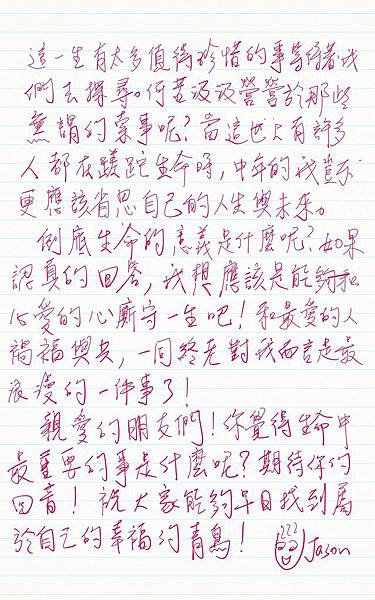 這一生有太多值得珍惜的事等待著我
們去探尋。何苦汲汲營營於那些
無謂的棄事呢?當這世上有許多
人都在蹉跎生命時,中年的我豈不
更應該省思自己的人生與未來。
倒底生命的意義是什麼呢?如果
認真的回答,我想應該是能夠和
心愛的心廝守一生吧!和最愛的人
禍福與共,一同終老對我而言是最
浪漫的一件事了!
親愛的朋友們!你覺得生命中
最重要的事是什麼呢?期待你的
回音!祝大家能夠早日找到屬
於自己的幸福的青鳥! Jason